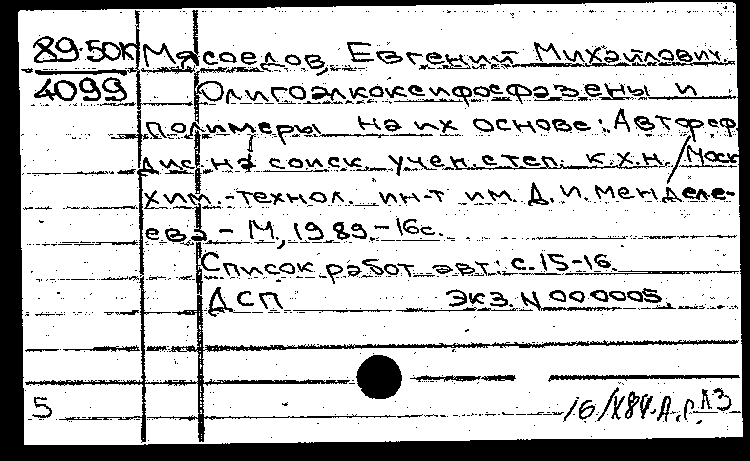 89-50К Мясоедов, Евгений Михайлович.
4099 Олигоалкоксифосфазены и
полимеры на их основе: Автореф.
дис. на соиск. учен. степ. к.х.н. / Моск.
хим.-технол. ин-т им. Д. И. Менделе-
ева - М, 1989 - 16с.
Список работ авт.: с. 15-16.
ДСП экз. N 000005.
5